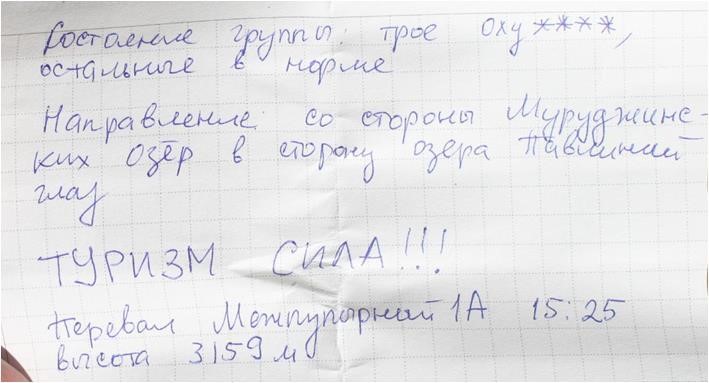 Состояние группы: трое оху****,
остальные в норме
Направление: со стороны Муруджинс-
ких озёр в сторону озера Павлиний
глаз
ТУРИЗМ СИЛА!!!
Перевал Межпупырный 1А 15:25
высота 3159 м